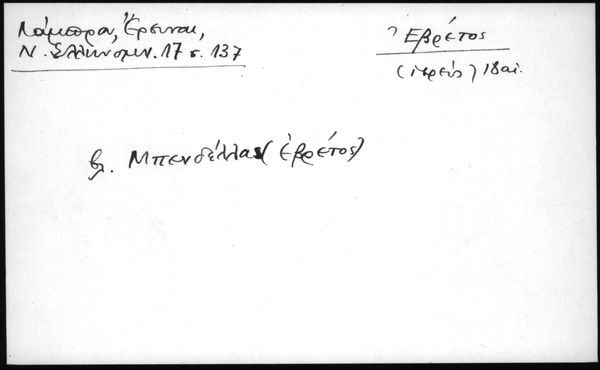 Λάμπρου, Ἔρευναι,
Ν. Ἑλληνομν. 17 σ. 137
Ἐβρέτος
(ἱερεύς) 18 αἰ.
βλ. Μπενδέλλας (Ἐβρέτος)